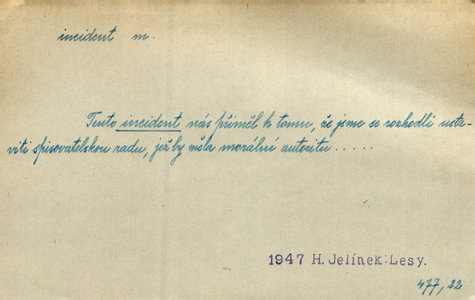 incident m.
Tento incident nás přiměl k tomu, že jsme se rozhodli usta-
viti spisovatelskou radu, jež by měla morální autoritu.....
1947 H. Jelínek: Lesy.
477, 22